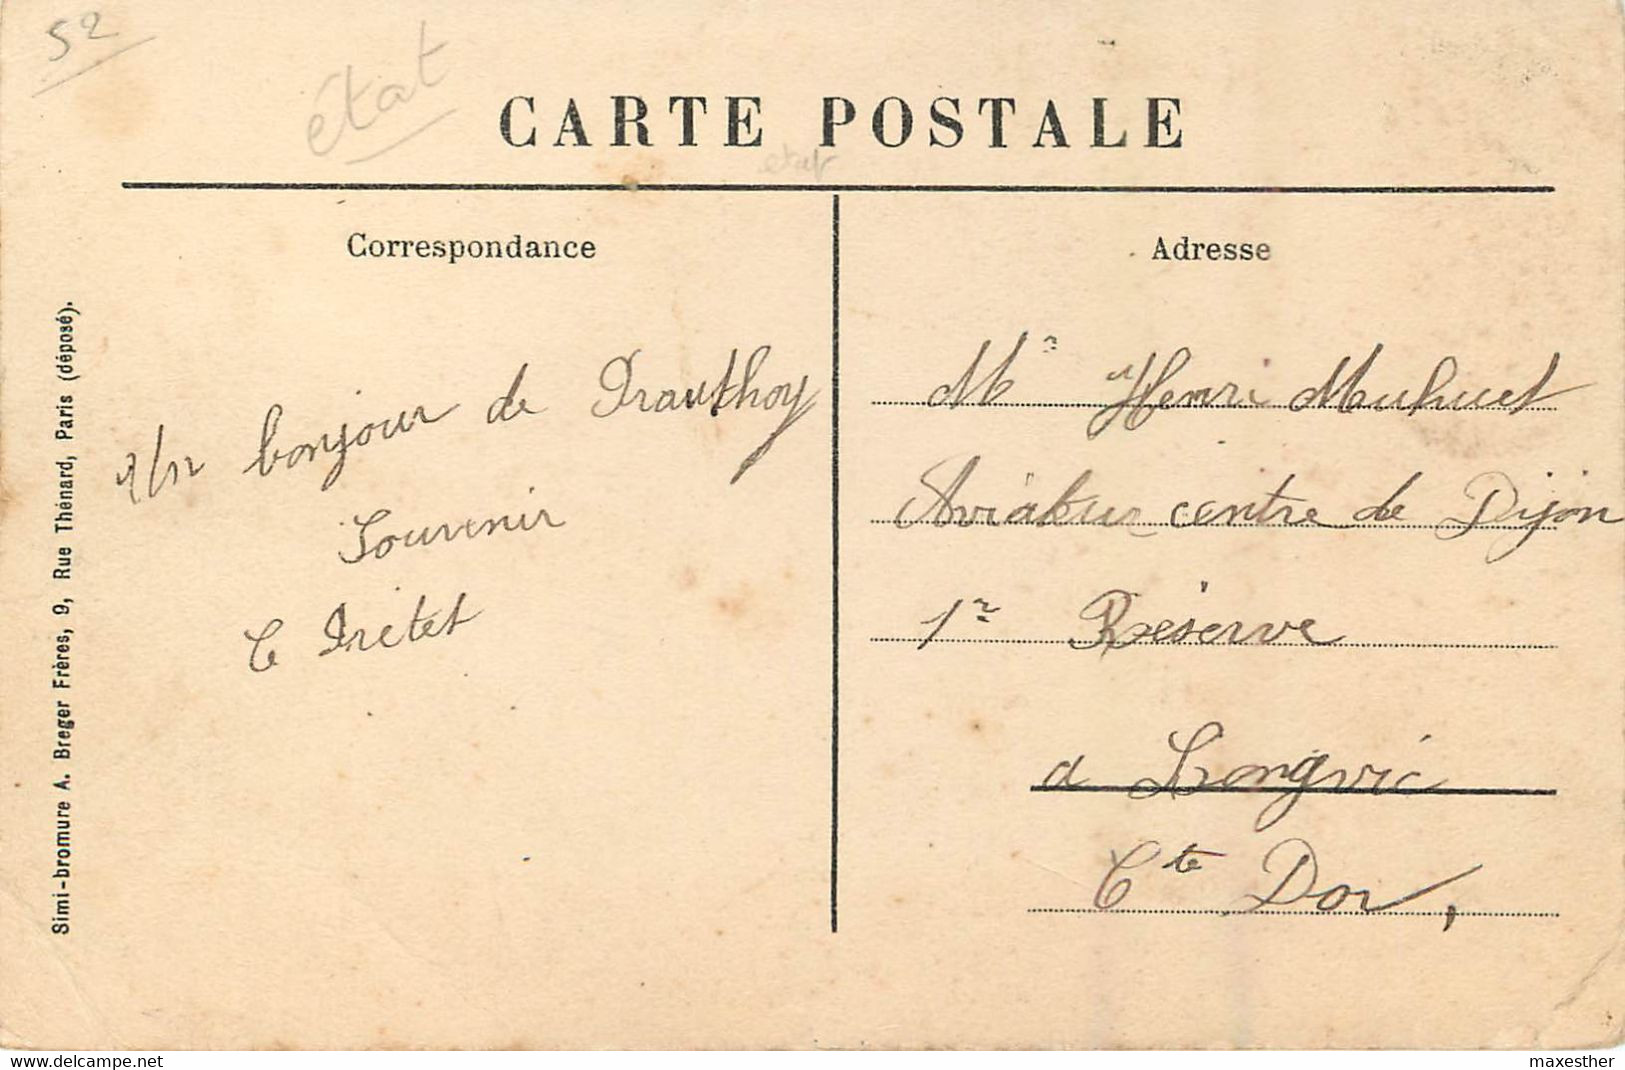 52
état
CARTE POSTALE
etat
Correspondance
Adresse
bonjour de Prauthoy
Souvenir
Mr Henri
Aviateur centre de Dijon
1re Réserve
a Longvic
Cte Dor,
Simi-bromure A. Breger Frères, 9, Rue Thénard, Paris (déposé).
www.delcampe.net
maxesther